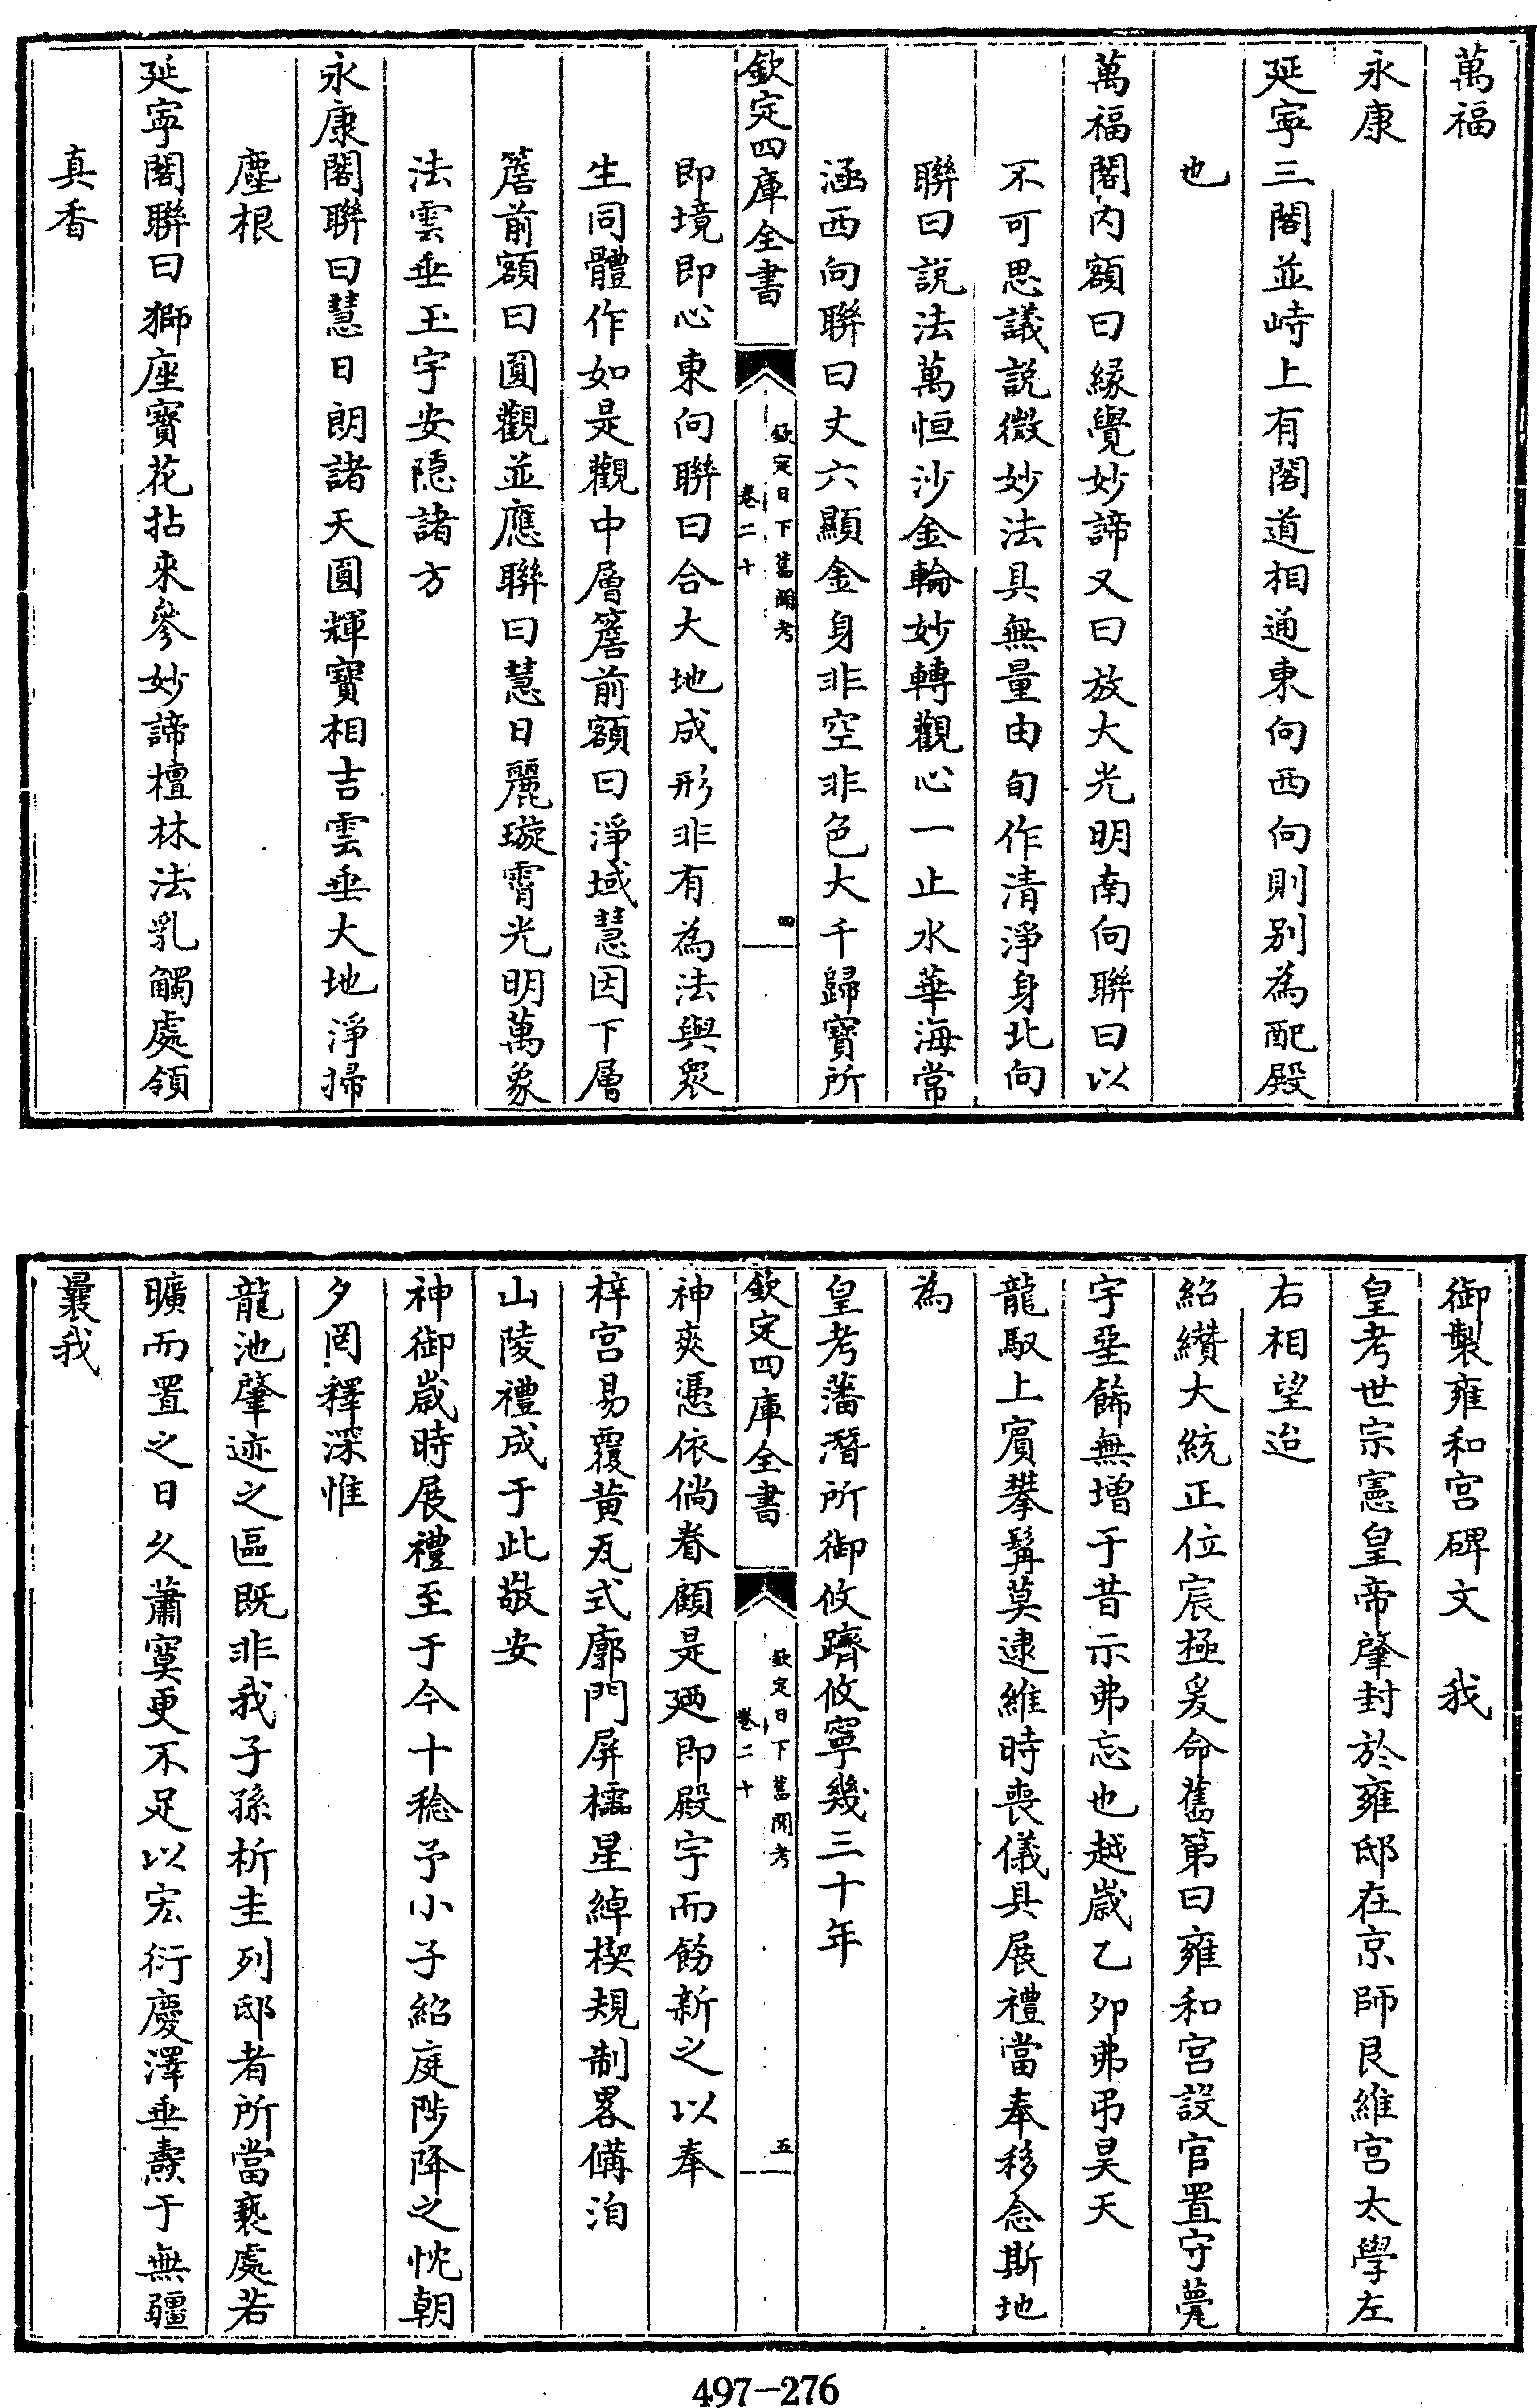 萬福
永康
延寧三閣並峙上有閣道相通東向西向則别為配殿
也
萬福閣内額曰緣覺妙諦又曰放大光明南向聯曰以
不可思議説微妙法具無量由旬作清淨身北向
聯曰説法萬恒沙金輪妙轉觀心一止水華海常
涵西向聯曰丈六顯金身非空非色大千歸寶所
欽定四庫全書
欽定日下舊聞考
卷二十
四
即境即心東向聯曰合大地成形非有為法與衆
生同體作如是觀中層簷前額曰淨域慧因下層
簷前額曰圓觀並應聯曰慧日麗璇霄光明萬象
法雲垂玉宇安隱諸方
永康閣聯曰慧日朗諸天圓輝寶相吉雲垂大地淨掃
塵根
延寧閣聯曰獅座寶花拈來參妙諦檀林法乳觸處領
真香
御製雍和宮碑文　我
皇考世宗憲皇帝肇封於雍邸在京師艮維宮太學左
右相望迨
紹纘大統正位宸極爰命舊第曰雍和宮設官置守甍
宇堊飾無增于昔示弗忘也越歲乙夘弗弔昊天
龍馭上賓攀髯莫逮維時喪儀具展禮當奉移念斯地
為
皇考藩潛所御攸躋攸寧幾三十年
欽定四庫全書
欽定日下舊聞考
卷二十
五
神爽憑依倘眷顧是廼即殿宇而飭新之以奉
梓宮易覆黄瓦式廓門屏櫺星綽楔規制畧備洎
山陵禮成于此敬安
神御歲時展禮至于今十稔予小子紹庭陟降之忱朝
夕罔釋深惟
龍池肇迹之區既非我子孫析圭列邸者所當褻處若
曠而置之日久蕭寞更不足以宏衍慶澤垂燾于無疆
曩我
497-276